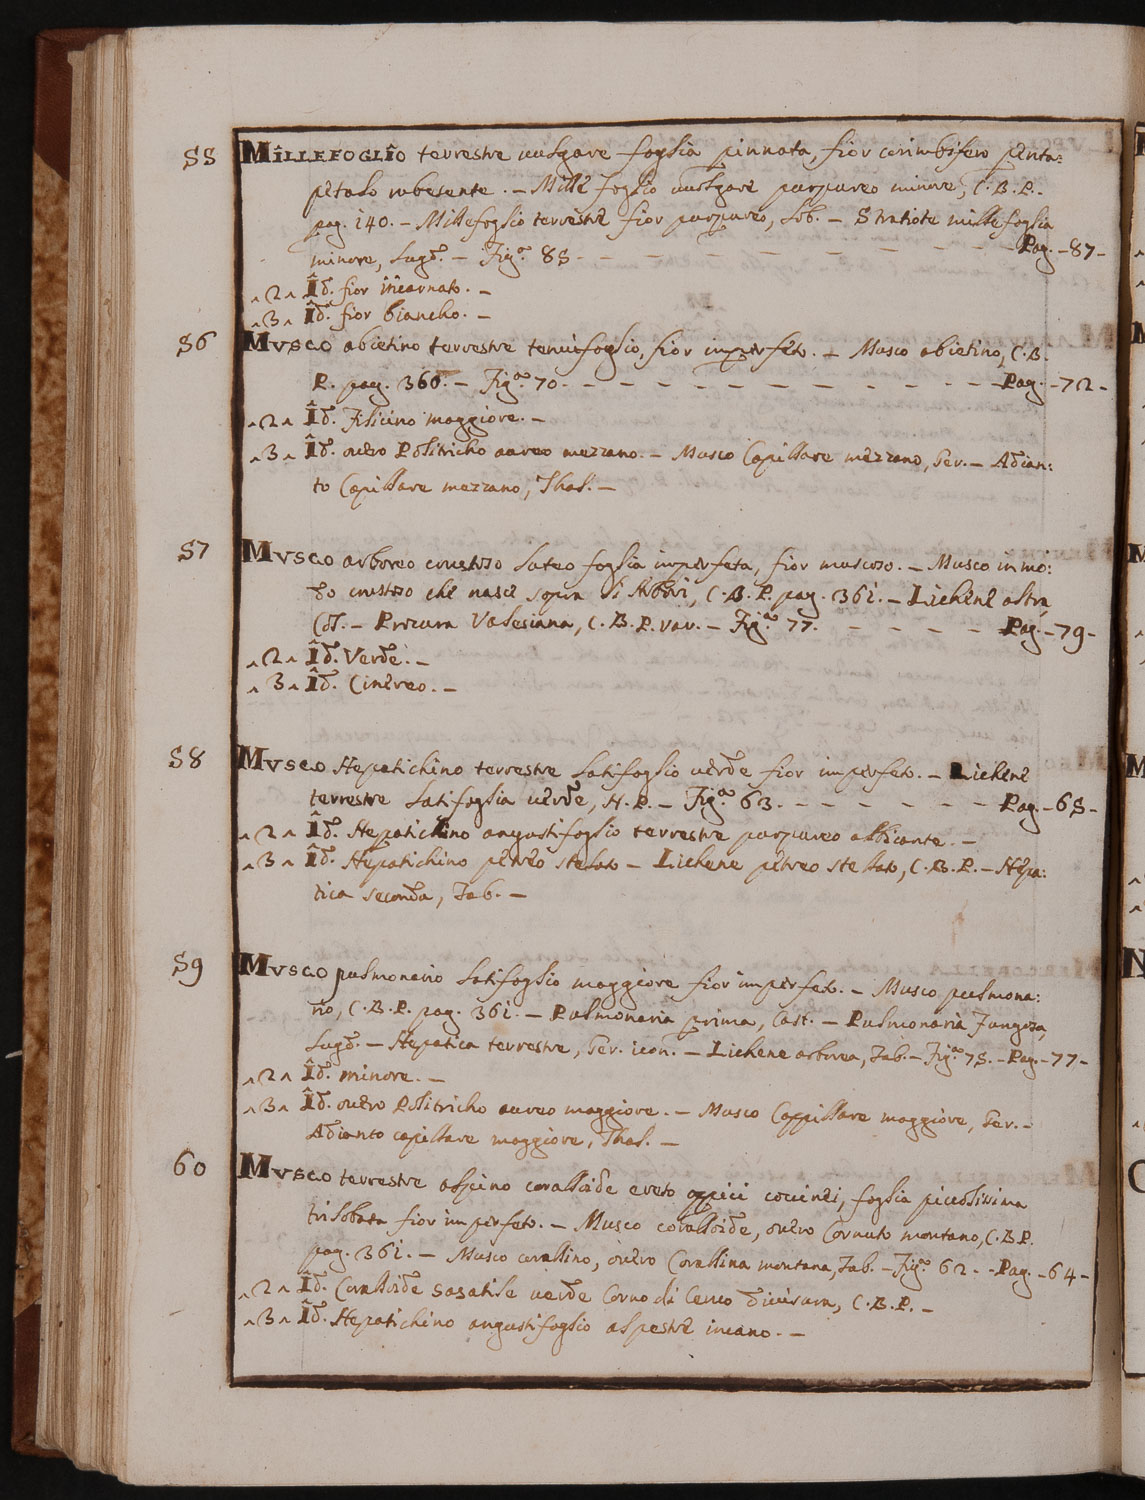 55 MILLEFOGLIO terrestre uulgare foglia pinnata, fior corimbifero penta:
petalo rubesente. – Mille foglio uulgare purpureo minore, C.B.P.
pag. 140. – Millefoglio terrestre fior purpureo, Lob. – Stratiote millefoglia
minore, Lugd. – Fig.ª 85 - - - - - - - - - Pag. – 87 -
^ 2 ^ Id. fior incarnato. –
^ 3 ^ Id. fior biancho. –
56 MVSCO abietino terrestre tenuifoglio, fior imperfeto. – Musco abietino, C.B.
P. pag. 360. – Fig.ª 70 - - - - - - - - - Pag. – 72 -
^ 2 ^ Id. Filicino maggiore. –
^ 3 ^ Id. ouero Politricho aureo mezzano. – Musco Capillare mezzano, Ger. – Adian:
to Capillare mezzano, Thal. –
57 MVSCO arboreo crustoso luteo foglia imperfeta, fior muscoso. – Musco in mo:
do crustoso che nasce sopra li Arbori, C.B.P. pag. 361. – Lichene altra,
Col. – Procura Valesiana, C.B.P. var. – Fig.ª 77. - - - - - Pag. – 79 -
^ 2 ^ Id. Verde. –
^ 3 ^ Id. Cinereo. –
58 MVSCO Hepatichino terrestre latifoglio uerde fior imperfeto. – Lichene
terrestre latifoglia uerde, H.P. – Fig.ª 63. - - - - - - Pag. – 65 -
^ 2 ^ Id. Hepatichino angustifoglio terrestre purpureo albicante. –
^ 3 ^ Id. Hepatichino petreo stelato – Lichene petreo stellato, C.B.P. – Hepa:
tica seconda, Tab. –
59 MVSCO pulmonario latifoglio maggiore fior imperfeto. – Musco pulmona:
rio, C.B.P. pag. 361. – Pulmonaria prima, Cast. – Pulmonaria Fungosa,
Lugd. – Hepatica terrestre, Ger. icon. – Lichene arborea, Tab. – Fig.ª 75. – Pag. – 77 -
^ 2 ^ Id. minore. –
^ 3 ^ Id. ouero Politricho aureo maggiore. – Musco Cappillare maggiore, Ger. –
Adianto capillare maggiore, Thal. –
60 MVSCO terrestre alpino coralloide ereto appici coccinei, foglia piccolissima
trilobata fior imperfeto. – Musco coralloide, ouero Cornuto montano, C.B.P.
pag. 361. – Musco corallino, ouero Corallina montana, Tab. – Fig.ª 62 - - Pag. – 64 -
^ 2 ^ Id. Coralloide sasatile uerde Corno di Ceruo diuisura, C.B.P. –
^ 3 ^ Id. Hepatichino angustifoglio alpestre incano. –